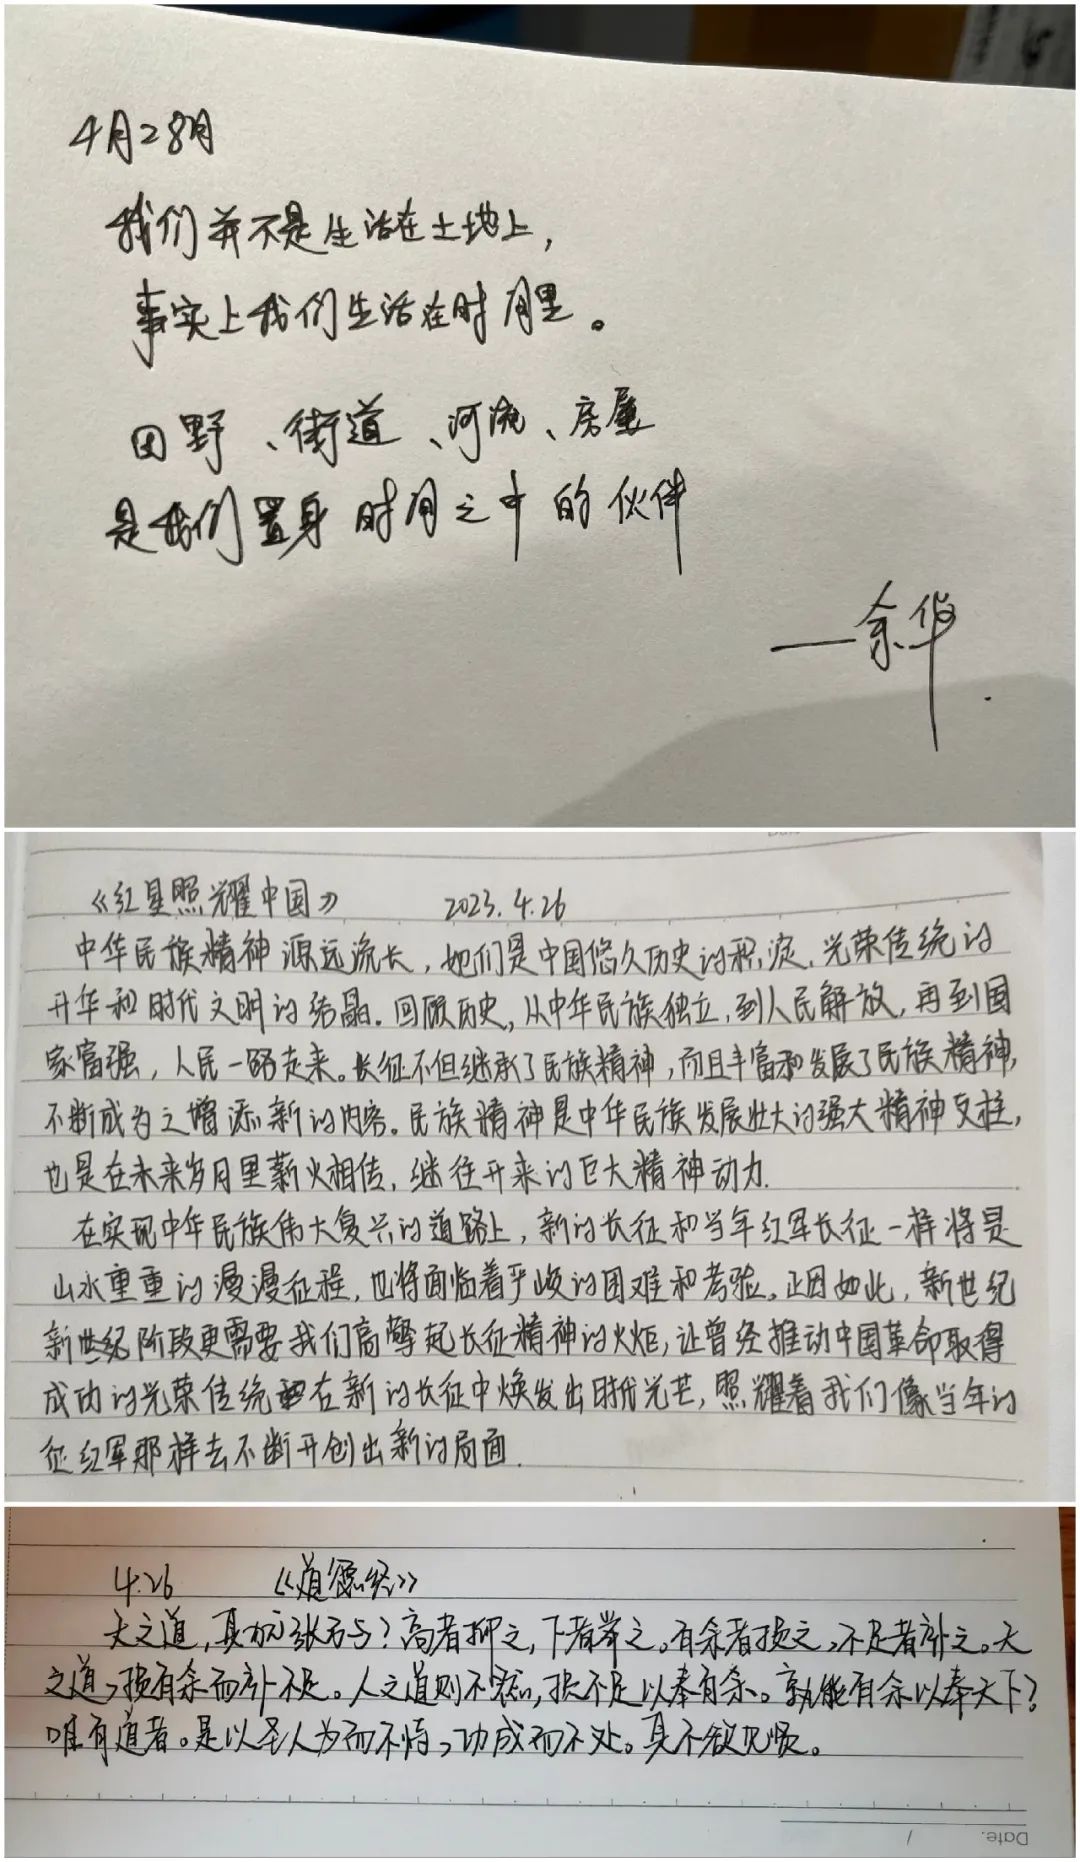 4月28日
我们并不是生活在土地上，
事实上我们生活在时间里。
田野、街道、河流、房屋
是我们置身时间之中的伙伴
——余华
《红星照耀中国》 2023.4.26
中华民族精神源远流长，她们是中国悠久历史的积淀、光荣传统的
升华和时代文明的结晶。回顾历史，从中华民族独立，到人民解放，再到国
家富强，人民一路走来。长征不但继承了民族精神，而且丰富和发展了民族精神，
不断成为之增添新的内容。民族精神是中华民族发展壮大的强大精神支柱，
也是在未来岁月里薪火相传，继往开来的巨大精神动力.
在实现中华民族伟大复兴的道路上，新的长征和当年红军长征一样将是
山水重重的漫漫征程，也将面临着严峻的困难和考验。正因如此，新世纪
新世纪阶段更需要我们高擎起长征精神的火炬，让曾经推动中国革命取得
成功的光荣传统在新的长征中焕发出时代光芒，照耀着我们像当年的
征红军那样去不断开创出新的局面.
4.26 《道德经》
天之道，其犹张弓与？高者抑之，下者举之。有余者损之，不足者补之。天
之道，损有余而补不足。人之道则不然，损不足以奉有余。孰能有余以奉天下？
唯有道者。是以圣人为而不恃，功成而不处。其不欲见贤。
Date.